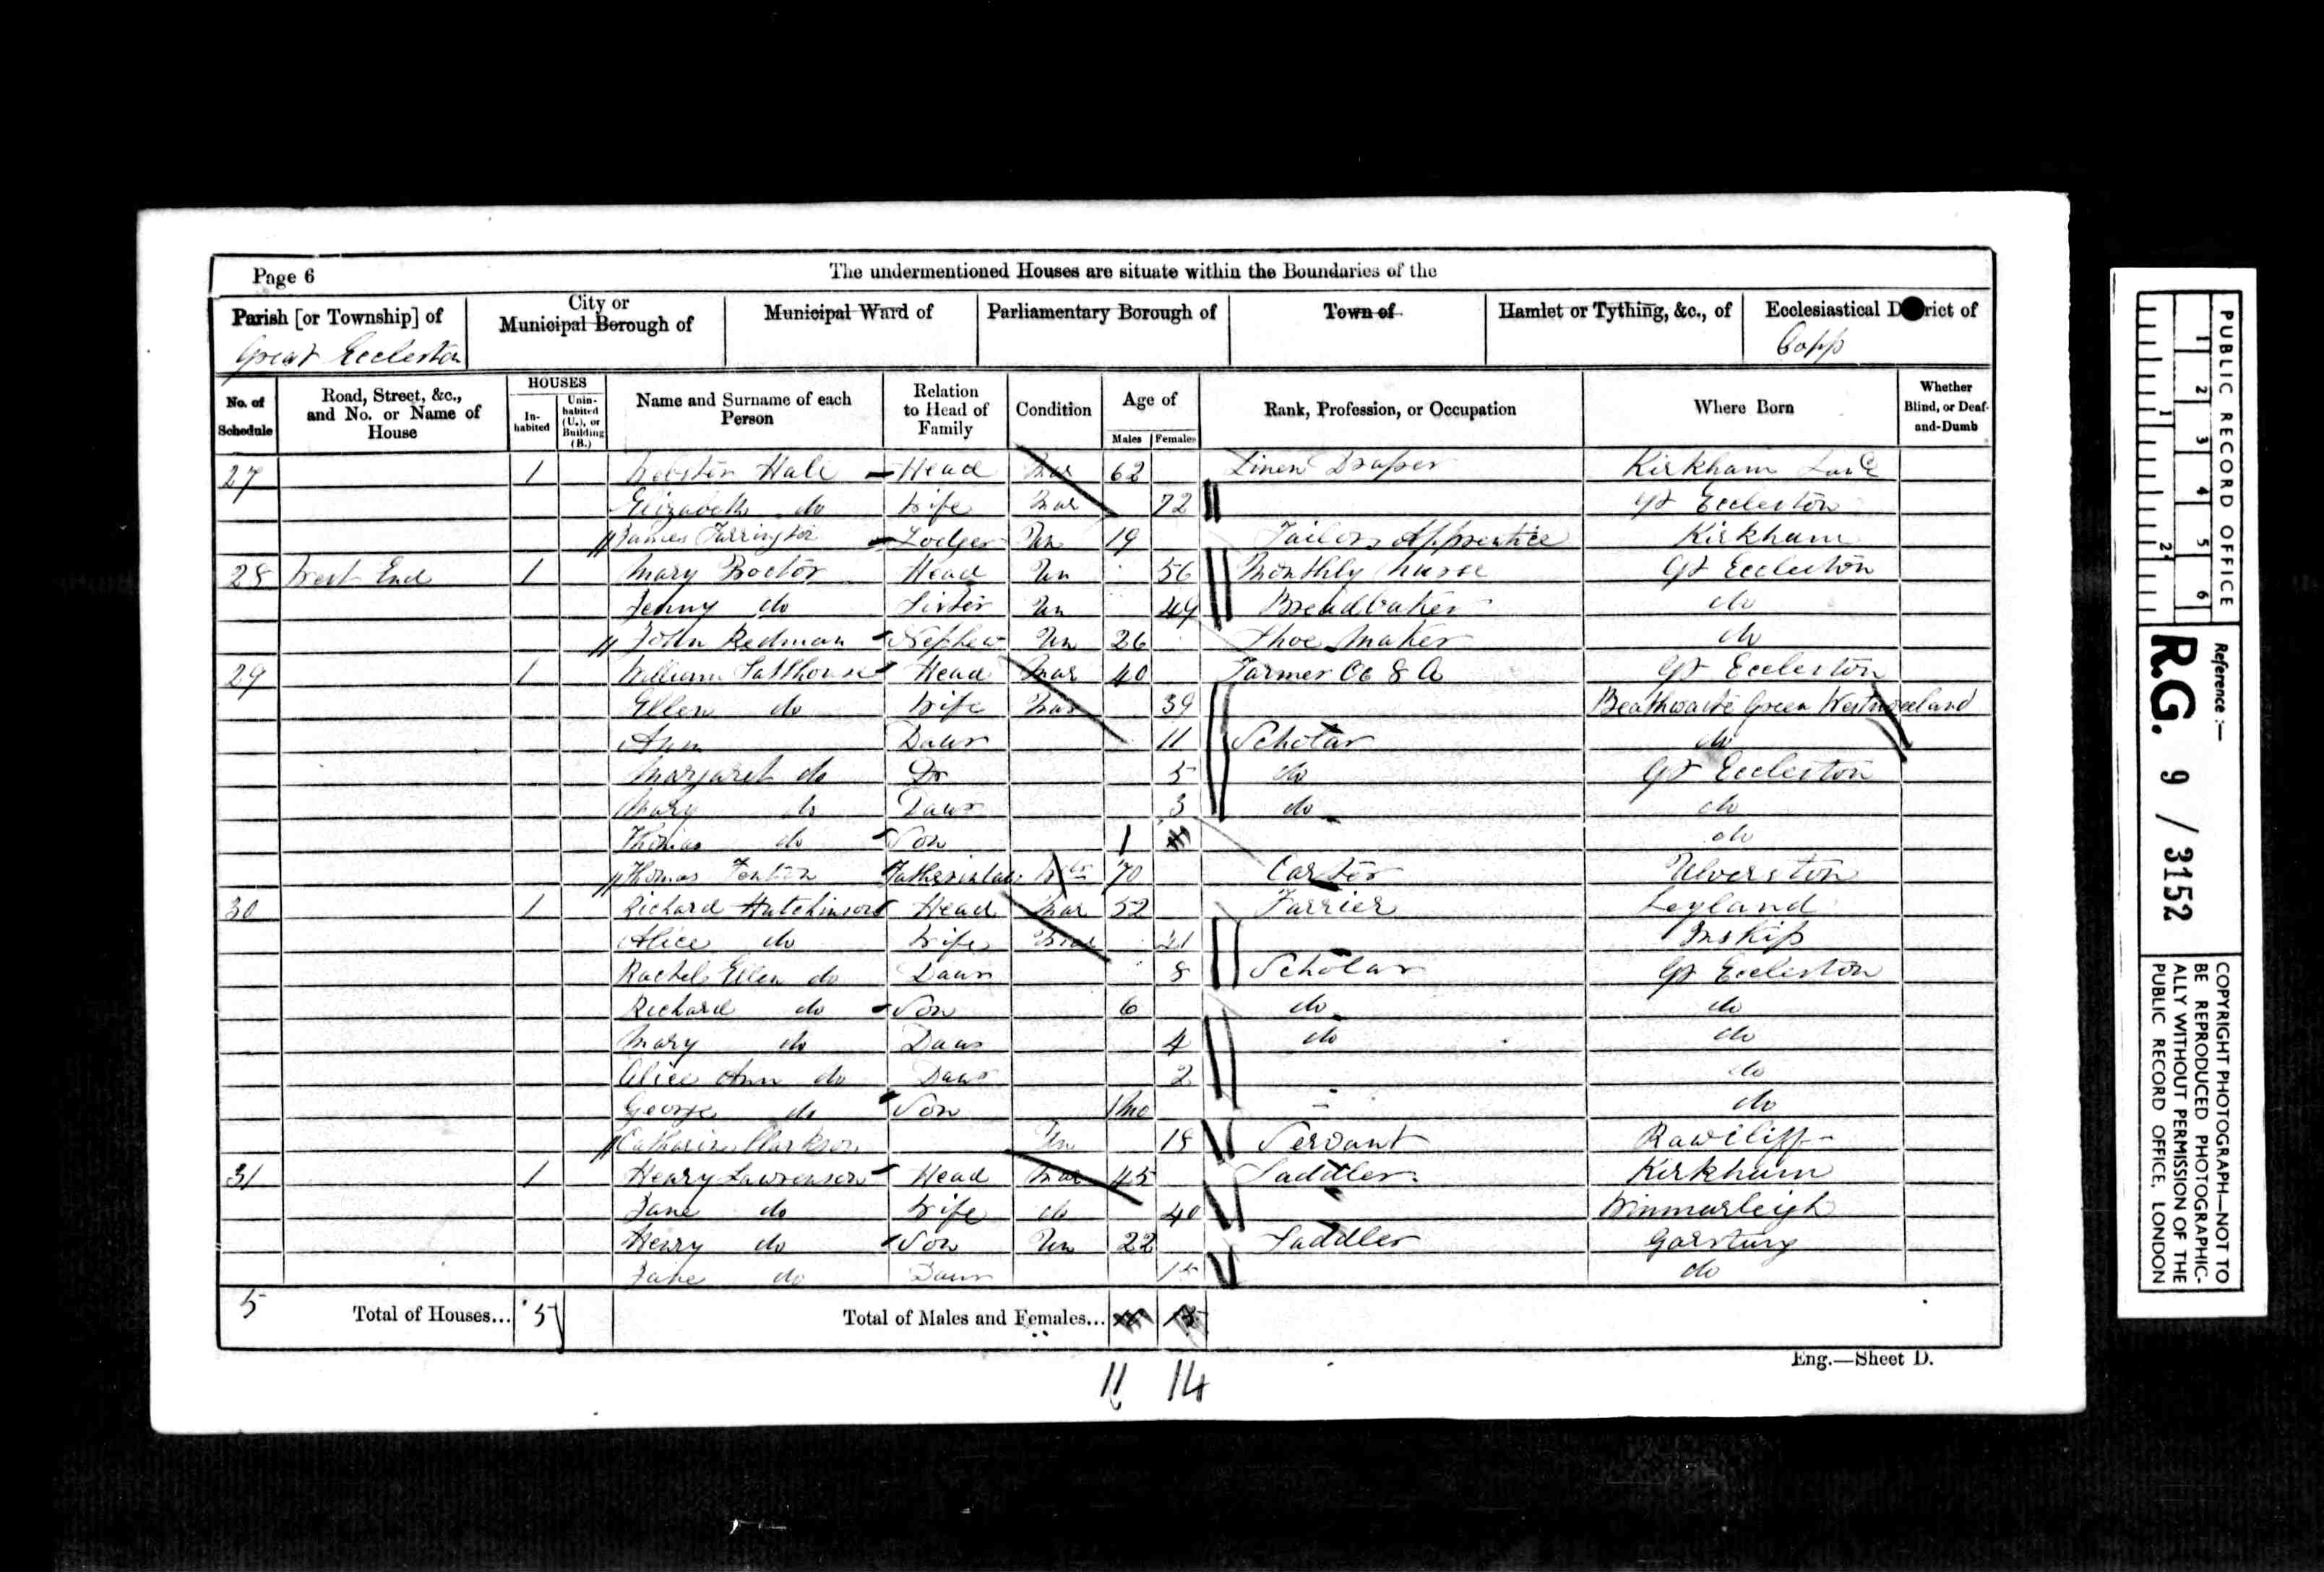 Page 6 The undermentioned Houses are situate within the Boundaries of the
Parish [or Township] of City or Municipal Borough of Municipal Ward of Parliamentary Borough of Town of Hamlet or Tything, &c., of Ecclesiastical District of
Great Eccleston Copp
No. of Schedule Road, Street, &c., and No. or Name of House HOUSES In-habited Unin-habited (U.), or Building (B.) Name and Surname of each Person Relation to Head of Family Condition Age of Males Females Rank, Profession, or Occupation Where Born Whether Blind, or Deaf-and-Dumb
27 1 Webster Hall Head Mar 62 Linen Draper Kirkham Lanc
Elizabeth do Wife Mar 72 Gt Eccleston
James Farrington Lodger Un 19 Tailors Apprentice Kirkham
28 West End 1 Mary Proctor Head Un 56 Monthly Nurse Gt Eccleston
Jenny do Sister Un 49 Breadbaker do
John Redman Nephew Un 26 Shoe Maker do
29 1 William Head Mar 40 Farmer Gt Eccleston
Ellen do Wife Mar 39 Beathwaite Green Westmoreland
Ann Daur 11 Scholar do
Margaret do Dr 5 do Gt Eccleston
Mary do Daur 3 do do
Thomas do Son 1 do
Thomas Fenton Fatherinlaw 70 Carter Ulverston
30 1 Richard Hutchinson Head Mar 52 Farrier Leyland
Alice do Wife Mar Inskip
Rachel Ellen do Daur 8 Scholar Gt Eccleston
Richard do Son 6 do do
Mary do Daur 4 do do
Alice Ann do Daur 2 do
George do Son 1 mo - do
Catharine Clarkson Un 18 Servant Rawcliff
31 1 Henry Lawrenson Head Mar 45 Saddler Kirkham
Jane do Wife do 40 Winmarleigh
Henry do Son Un 22 Saddler Garstang
Jane do Daur do
5 Total of Houses... 5 Total of Males and Females...
11 14
Eng.—Sheet D.
PUBLIC RECORD OFFICE
1 2 3 4 5 6
1 2
Reference :—
R.G. 9 / 3152
COPYRIGHT PHOTOGRAPH—NOT TO
BE REPRODUCED PHOTOGRAPHIC-
ALLY WITHOUT PERMISSION OF THE
PUBLIC RECORD OFFICE, LONDON